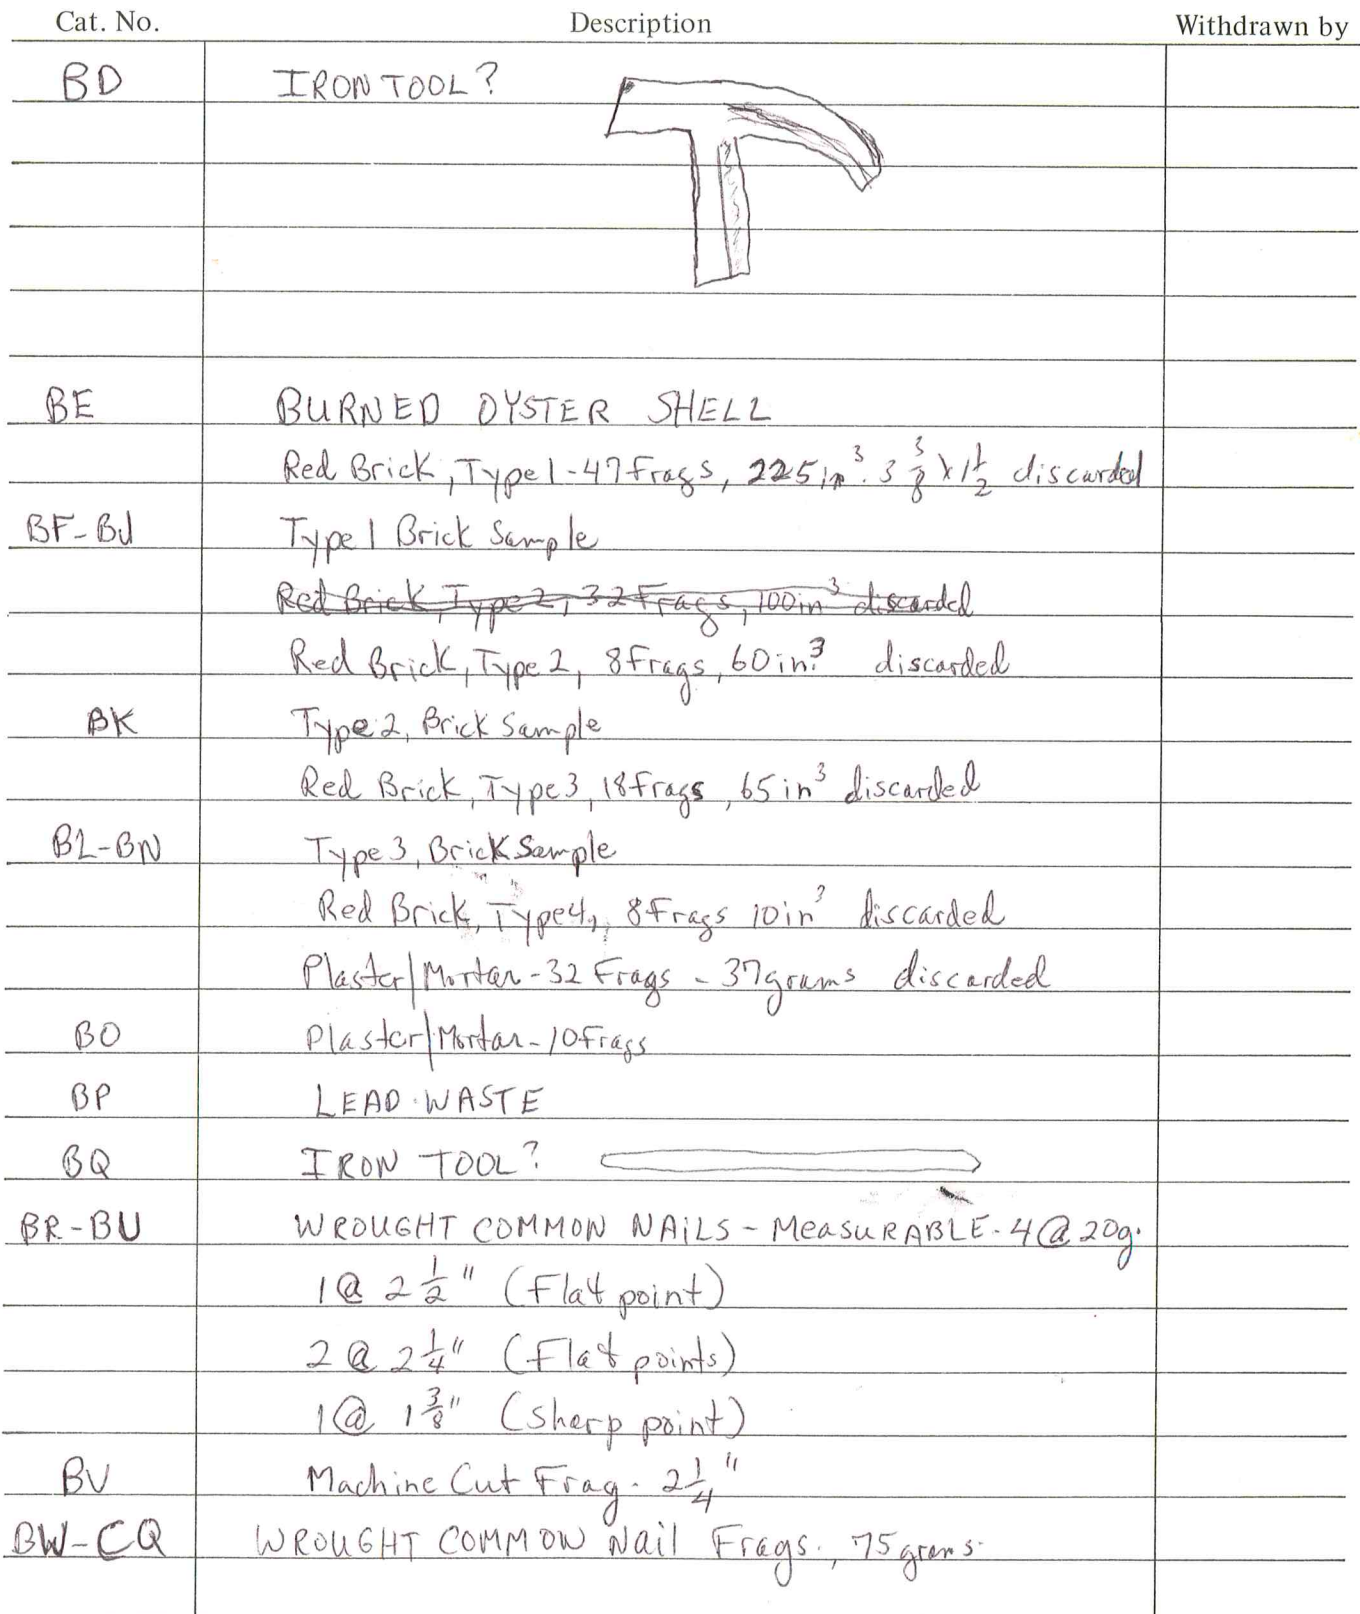 Cat. No. Description Withdrawn by
BD IRON TOOL?
BE BURNED OYSTER SHELL
Red Brick, Type 1-47 Frags, 225 in³. 3 3/8 x 1 1/2 discarded
BF-BJ Type 1 Brick Sample
Red Brick, Type 2, 32 Frags, 100 in³ discarded
Red Brick, Type 2, 8 Frags, 60 in³. discarded
BK Type 2, Brick Sample
Red Brick, Type 3, 18 Frags, 65 in³ discarded
BL-BN Type 3, Brick Sample
Red Brick, Type 4, 8 Frags 10 in³ discarded
Plaster/Mortar - 32 Frags - 37 grams discarded
BO Plaster/Mortar - 10 Frags
BP LEAD WASTE
BQ IRON TOOL?
BR-BU WROUGHT COMMON NAILS - MEASURABLE - 4 @ 20g.
1 @ 2 1/2" (Flat point)
2 @ 2 1/4" (Flat points)
1 @ 1 3/8" (sharp point)
BV Machine Cut Frag. 2 1/4"
BW-CQ WROUGHT COMMON Nail Frags., 75 grams.